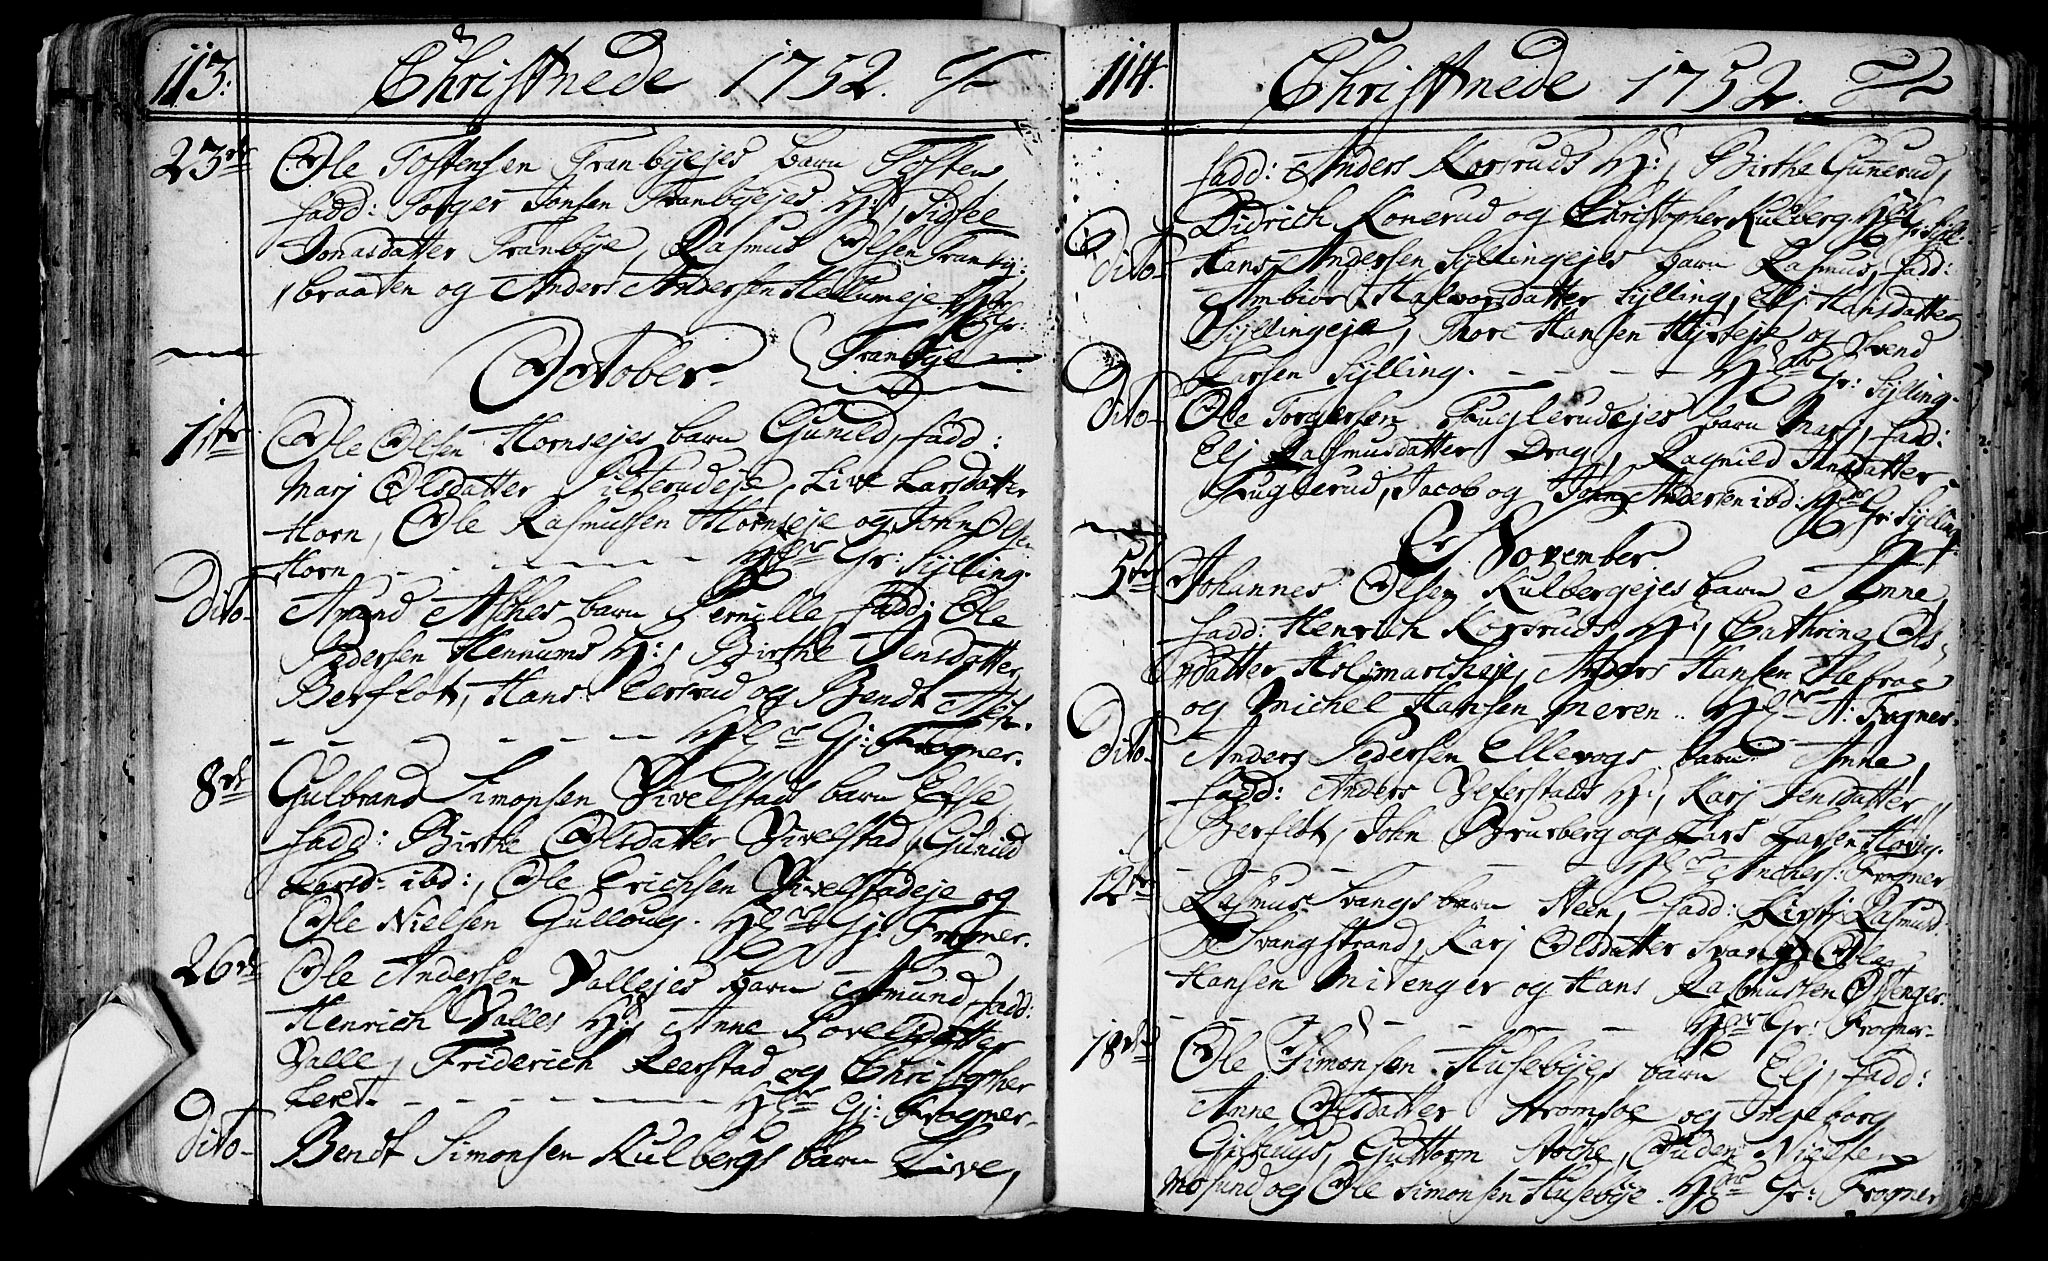 113. Christnede 1752.
23de Ole Tostensen Tranbyejes barn Tosten
fadd: Torger Jonsen Tranbyejes H:, Sidsel
Jonasdatter Tranbye, Rasmus Olsen Tranby:
braaten og Anders Andersen Hellumeje
Gr: Tranbye
October
1ste Ole Olsen Hornsejes barn Gunild, fadd:
Marj Olsdatter Silterudeje, Live Larsdatter
Horn, Ole Rasmussen Hornseje og John Olsen
Horn Gr: Sylling.
Dito Amund Aschers barn Pernille, fadd: Ole
Pedersen Hennums H:, Birthe Jensdatter
Berfløt, Hans Eersrud og Bendt
Gj: Frogner.
8de Gulbrand Simonsen Vivelstads barn Else
fadd: Birthe Olsdatter Vivelstad, Gunild
Larsd: ibd:, Ole Erichsen Vivelstadeje og
Ole Nielsen Gulloug. Gj: Frogner.
26de Ole Andersen Vallejes barn Asmund, fadd:
Henrich Valles H:, Anne Povelsdatter
Valle, Friderich Leerstad og Christopher
Leret Gj: Frogner
Dito Bendt Simonsen Kulbergs barn Live,
114. Christnede 1752.
fadd: Anders Korsruds H:, Birthe Gunerud,
Didrich Konerud og Christopher Kulberg.
Dito Hans Andersen Syllingejes barn Rasmus, fadd:
Ambiør Halvorsdatter Sylling, Elj Hansdatter
Syllingeje, Thore Hansen Hyrseje og Svend
Larsen Sylling. Gr: Sylling.
Dito Ole Torgersen Fuglerudejes barn Marj, fadd:
Elj Rasmusdatter Drag, Ragnild Jensdatter
Fuglerud, Jacob og John Andersen ibd: Gr: Sylling
November
5te Johannes Olsen Kulbergejes barn Anne,
fadd: Henrich Korsruds H:, Cathrine Ols-
datter Holsmarcheje, Anders Hansen
og Michel Hansen Meren. A: Frogner.
Dito Anders Pedersen Ellevogs barn Anne,
fadd: Anders Veferstads H:, Karj Jensdatter
Berfløt, John Brursberg og Lars Larsen Høvig.
Anchers: Frogner
12te Rasmus Svangs barn Steen, fadd: Kirstj Rasmusd:
Svangstrand, Karj Olsdatter Svang, Ole
Hansen Mivenger og Hans Rasmussen Østenger.
Gr: Frogner
18de Ole Simonsen Husebyes barn Elj, fadd:
Anne Olsdatter Strømsøe og Ingeborg
Gilhuus, Guttorm Stoche, Auden Nielsen
Mosund og Ole Simonsen Husebye. Gr: Frogner